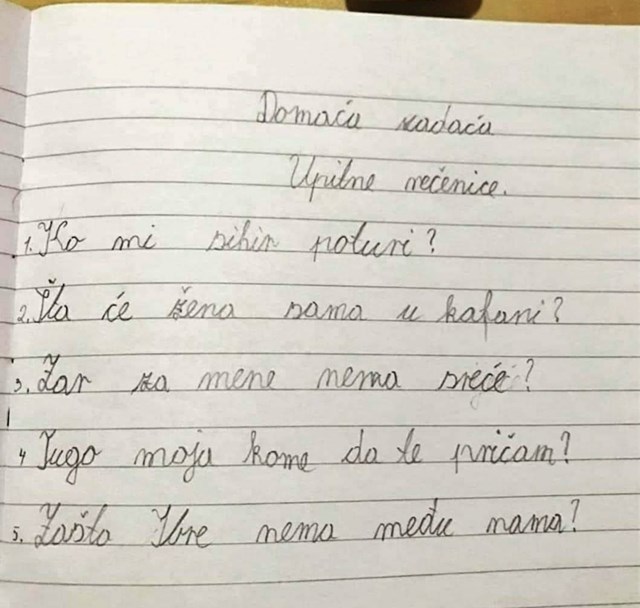 Domaća zadaća
Upitne rečenice.
1. Ko mi sihir poturi?
2. Šta će žena sama u kafani?
3. Zar za mene nema sreće?
4 Tugo moja kome da te pričam?
5. Zašto Ibre nema među nama?